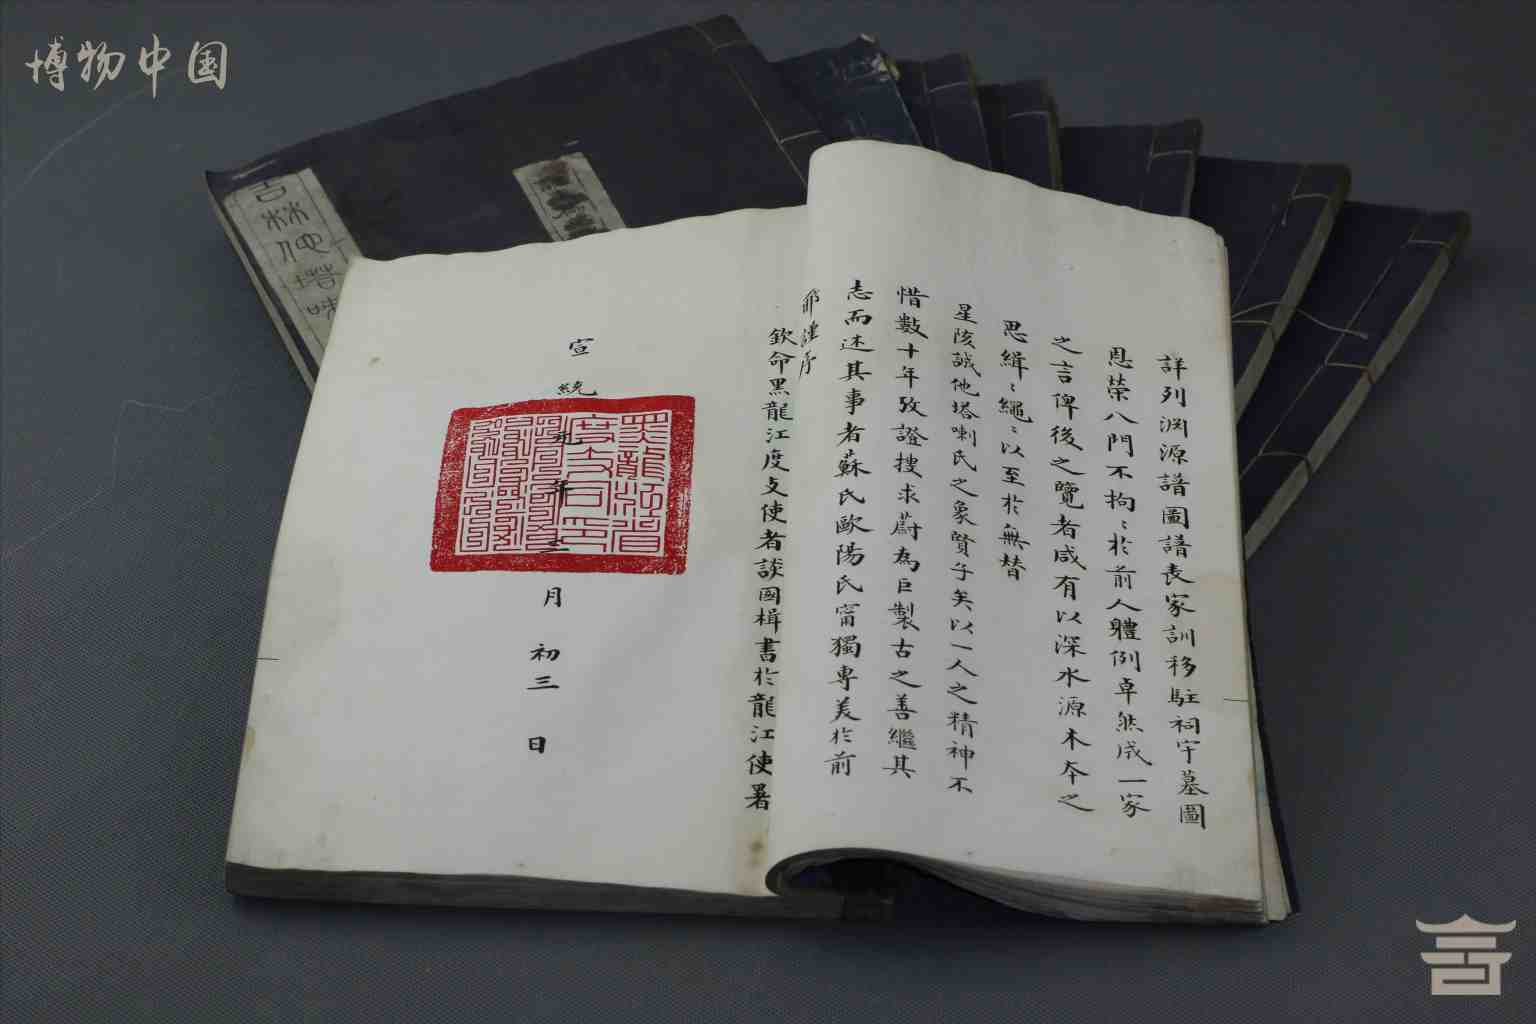 博物中国
詳列淵源譜圖譜表家訓移駐祠宇墓圖
恩榮八門不拘〻於前人體例卓然成一家
之言俾後之覽者咸有以深水源木本之
思緝〻繩〻以至於無替
星陔誠他塔喇氏之象賢子矣以一人之精神不
惜數十年攷證搜求蔚為巨製古之善繼其
志而述其事者蘇氏歐陽氏甯獨專美於前
耶謹序
欽命黑龍江度支使者談國楫書於龍江使署
宣統元年三月初三日
黑龍江省
度支司印
吉林他塔喇